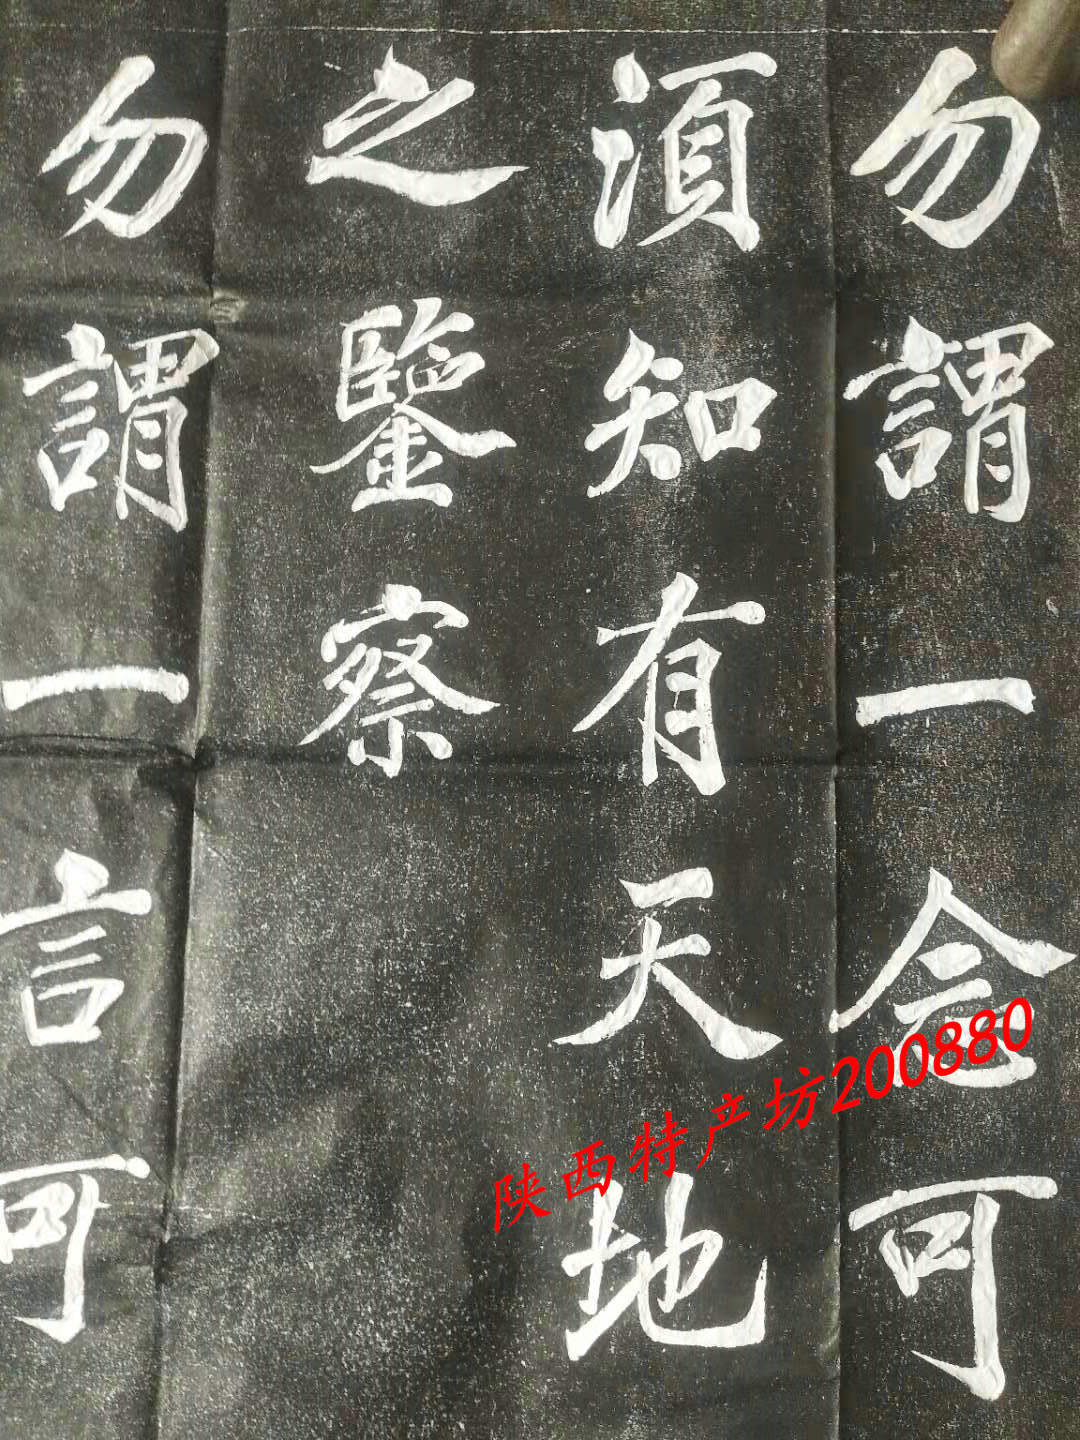 勿謂一念可
湏知有天地
之鑒察
勿謂一言可
陕西特产坊200880